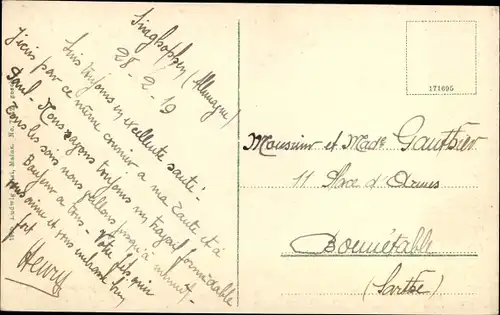 (Allemagne)
28-2-19
Suis toujours en excellente santé-
J'écris par ce même courrier à ma tante et à
Paul - Nous avons toujours un travail formidable
Tous les soirs nous jusqu'à minuit-
Bonjour à tous - Votre fils qui
vous aime et vous embrasse bien
fort
Henry
171695
Monsieur et Made Gauthier
11 Place d'Armes
Bonnétable
(Sarthe)